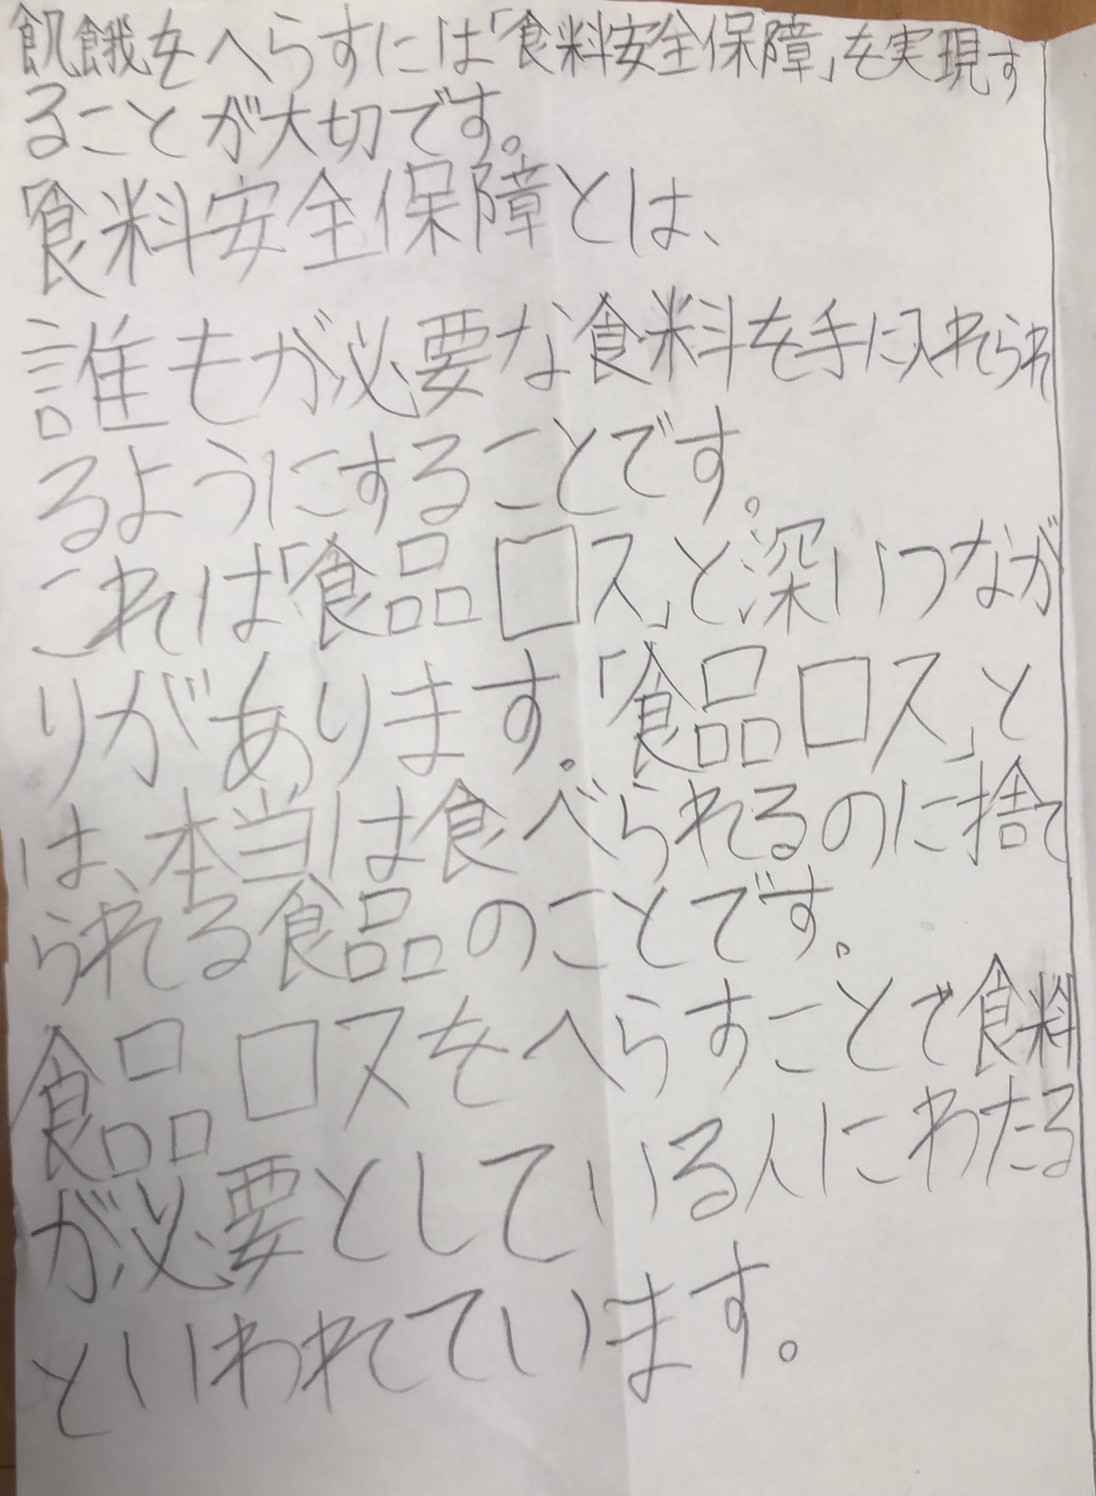 飢餓をへらすには「食料安全保障」を実現す
ることが大切です。
「食料安全保障とは、
誰もが必要な食料を手に入れられ
るようにすることです。
これは「食品ロス」と深いつなが
りがあります。「食品ロス」と
は、本当は食べられるのに捨て
られる食品のことです。
食品ロスをへらすことで食料
が必要としている人にわたる
といわれています。